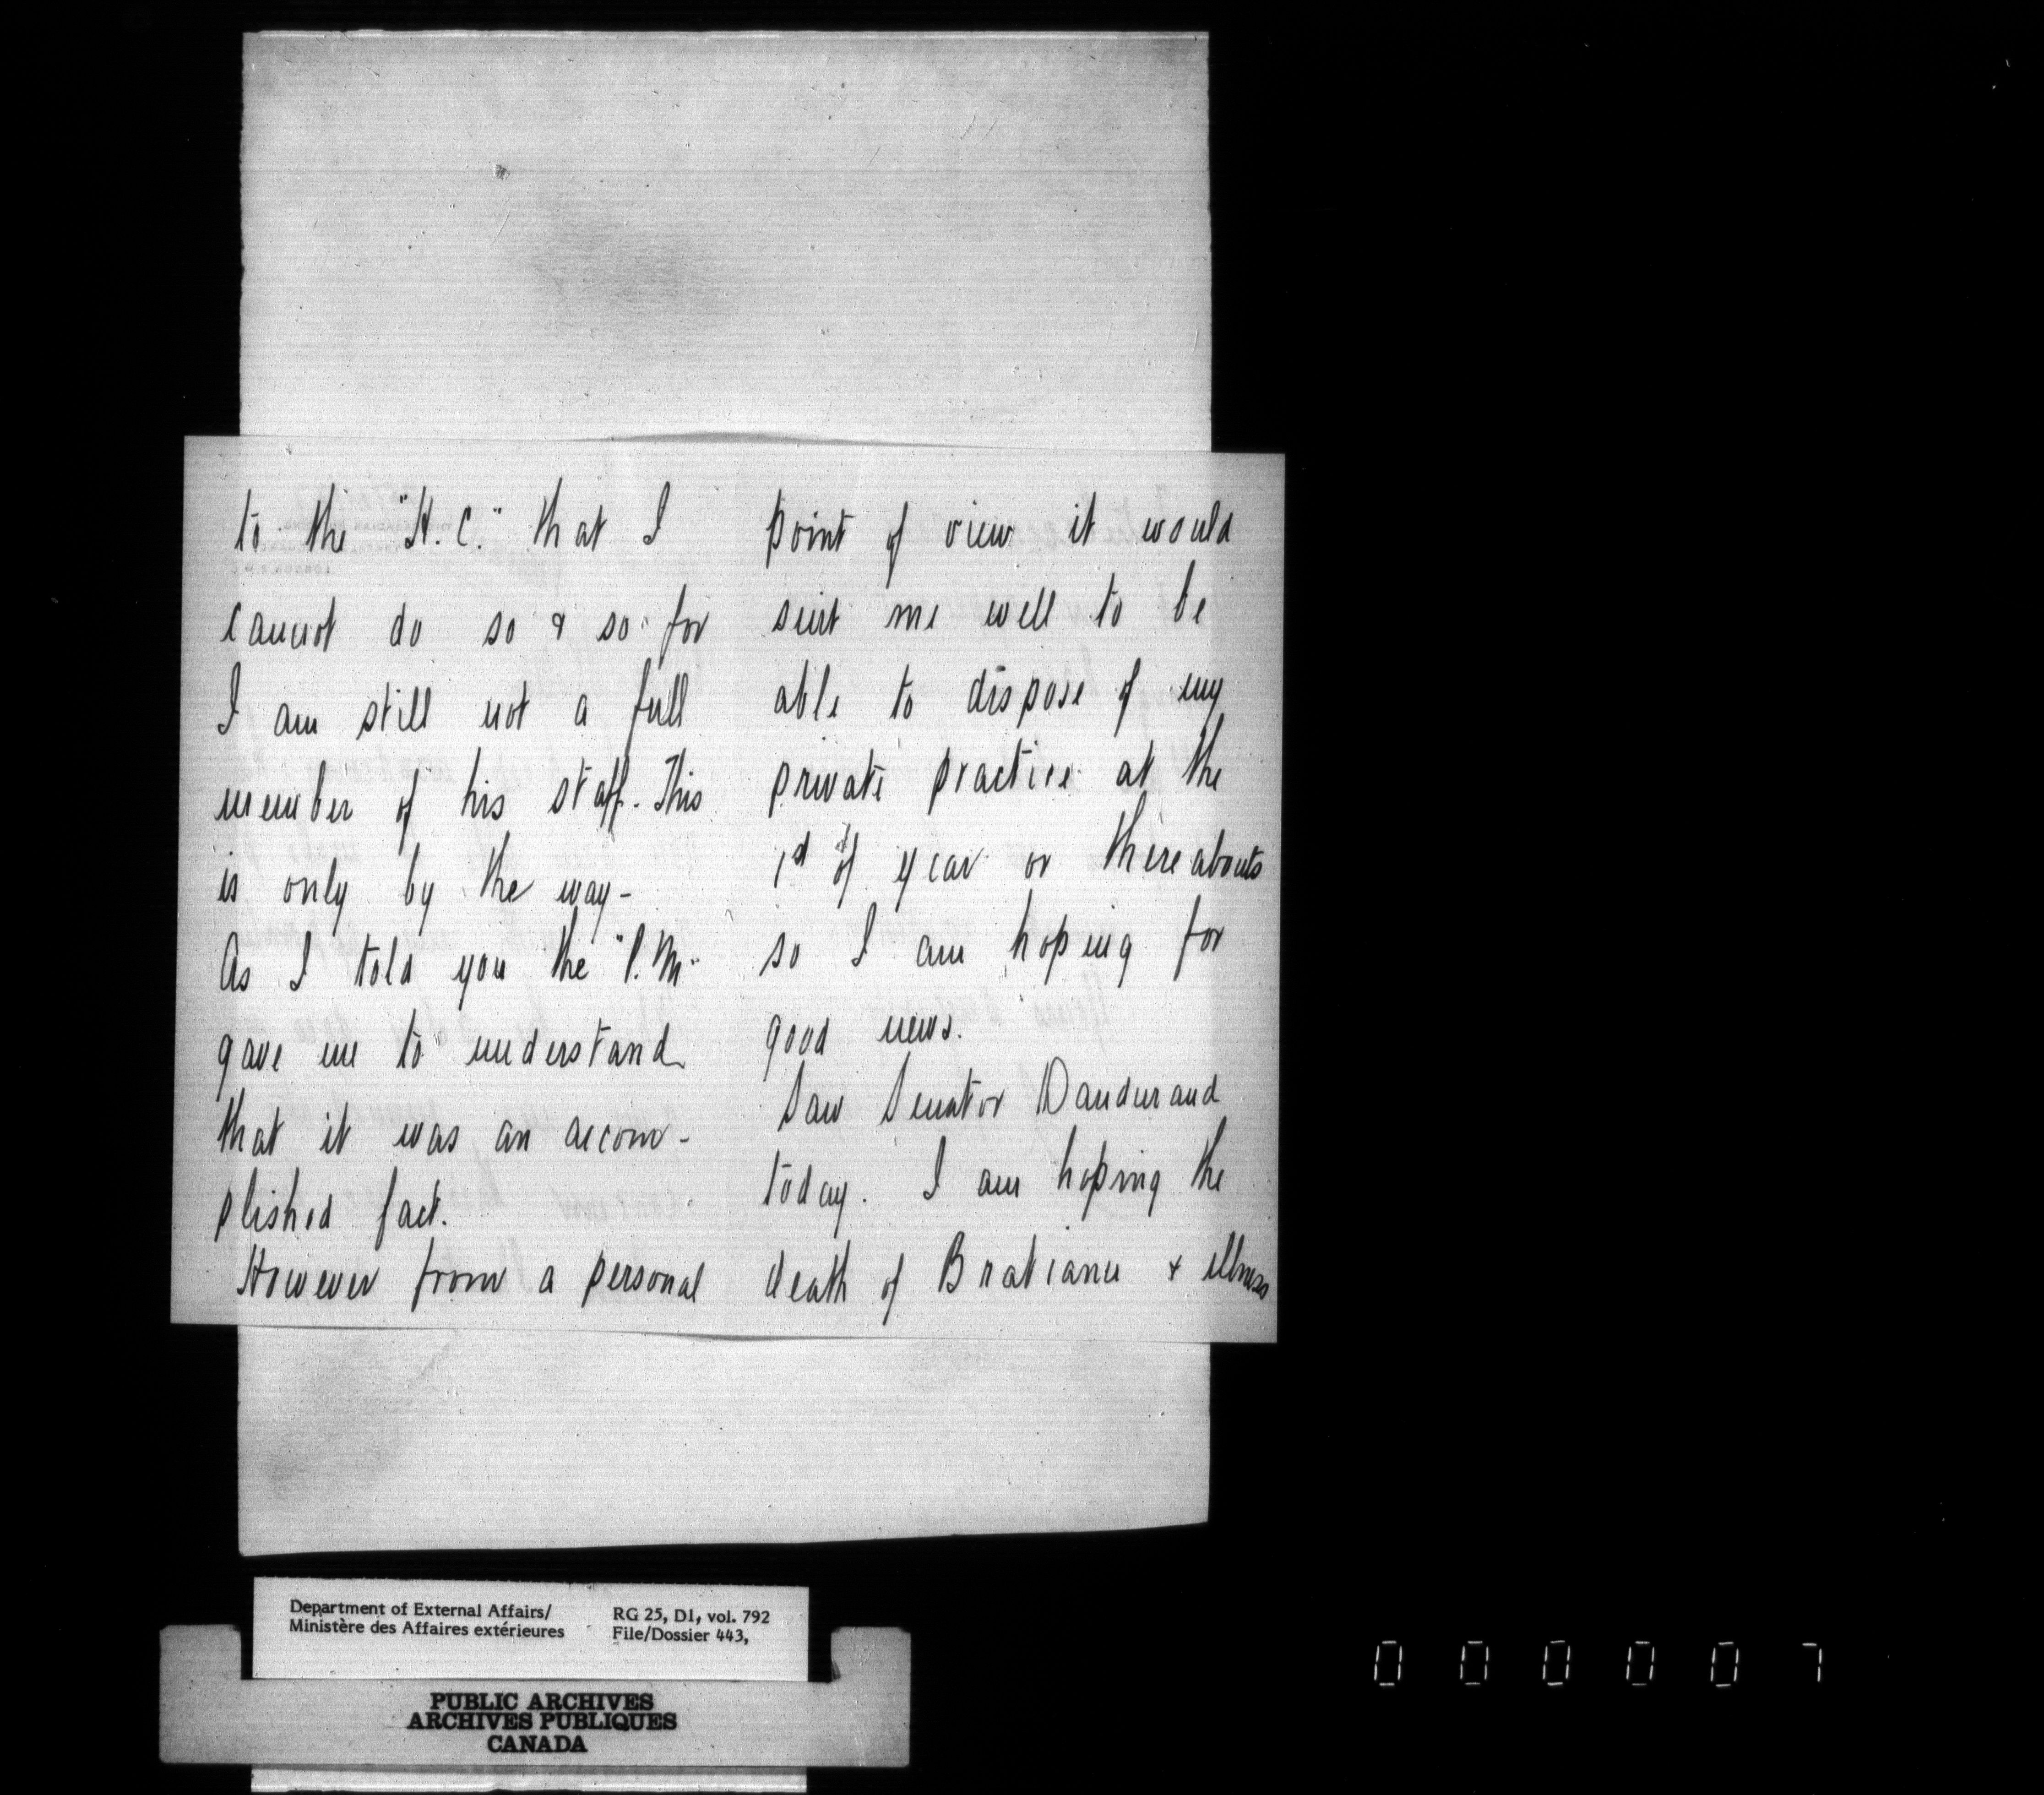 to the "H.C." that I
cannot do so & so for
I am still not a full
member of his staff. This
is only by the way -
As I told you the "P.M"
gave me to understand
that it was an accom-
plished fact.
However from a personal
point of view it would
suit me well to be
able to dispose of my
private practice at the
1st of year or thereabouts
so I am hoping for
good news.
Saw Senator Dandurand
today. I am hoping the
death of Bratianu & illness
Department of External Affairs/
Ministère des Affaires extérieures
RG 25, D1, vol. 792
File/Dossier 443,
PUBLIC ARCHIVES
ARCHIVES PUBLIQUES
CANADA
000007